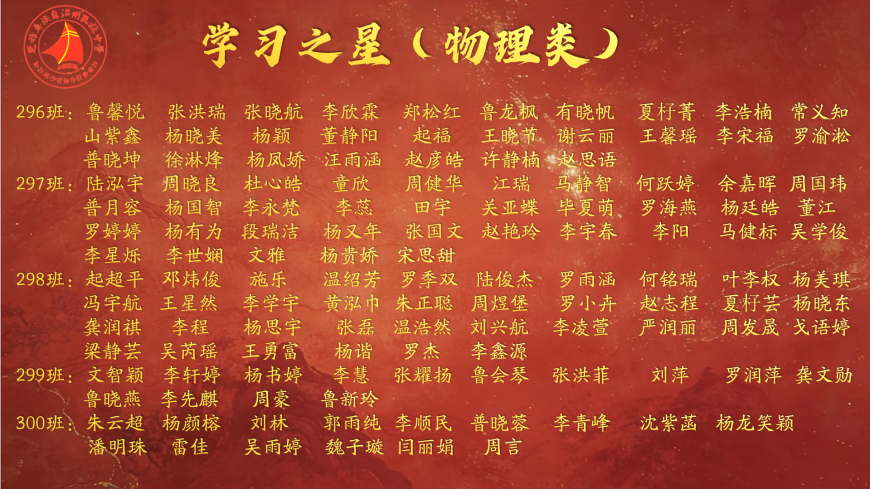 楚雄彝族自治州民族中学
学习之星（物理类）
296班：鲁馨悦 张洪瑞 张晓航 李欣霖 郑松红 鲁龙枫 有晓帆 夏杍菁 李浩楠 常义知
山紫鑫 杨晓美 杨颖 董静阳 起福 王晓节 谢云丽 王馨瑶 李宋福 罗渝淞
普晓坤 徐淋烽 杨凤娇 汪雨涵 赵彦皓 许静楠 赵思语
297班：陆泓宇 周晓良 杜心皓 童欣 周健华 江瑞 马静智 何跃婷 余嘉晖 周国玮
普月容 杨国智 李永梵 李蕊 田宇 关亚蝶 毕夏萌 罗海燕 杨廷皓 董江
罗婷婷 杨有为 段瑞洁 杨又年 张国文 赵艳玲 李宇春 李阳 马健标 吴学俊
李星烁 李世娴 文雅 杨贵娇 宋思甜
298班：起超平 邓炜俊 施乐 温绍芳 罗季双 陆俊杰 罗雨涵 何铭瑞 叶李权 杨美琪
冯宇航 王星然 李学宇 黄泓巾 朱正聪 周煜堡 罗小卉 赵志程 夏杍芸 杨晓东
龚润祺 李程 杨思宇 张磊 温浩然 刘兴航 李凌萱 严润丽 周发晟 戈语婷
梁静芸 吴芮瑶 王勇富 杨谐 罗杰 李鑫源
299班：文智颖 李轩婷 杨书婷 李慧 张耀扬 鲁会琴 张洪菲 刘萍 罗润萍 龚文勋
鲁晓燕 李先麒 周豪 鲁新玲
300班：朱云超 杨颜榕 刘林 郭雨纯 李顺民 普晓蓉 李青峰 沈紫菡 杨龙笑颖
潘明珠 雷佳 吴雨婷 魏子璇 闫丽娟 周言